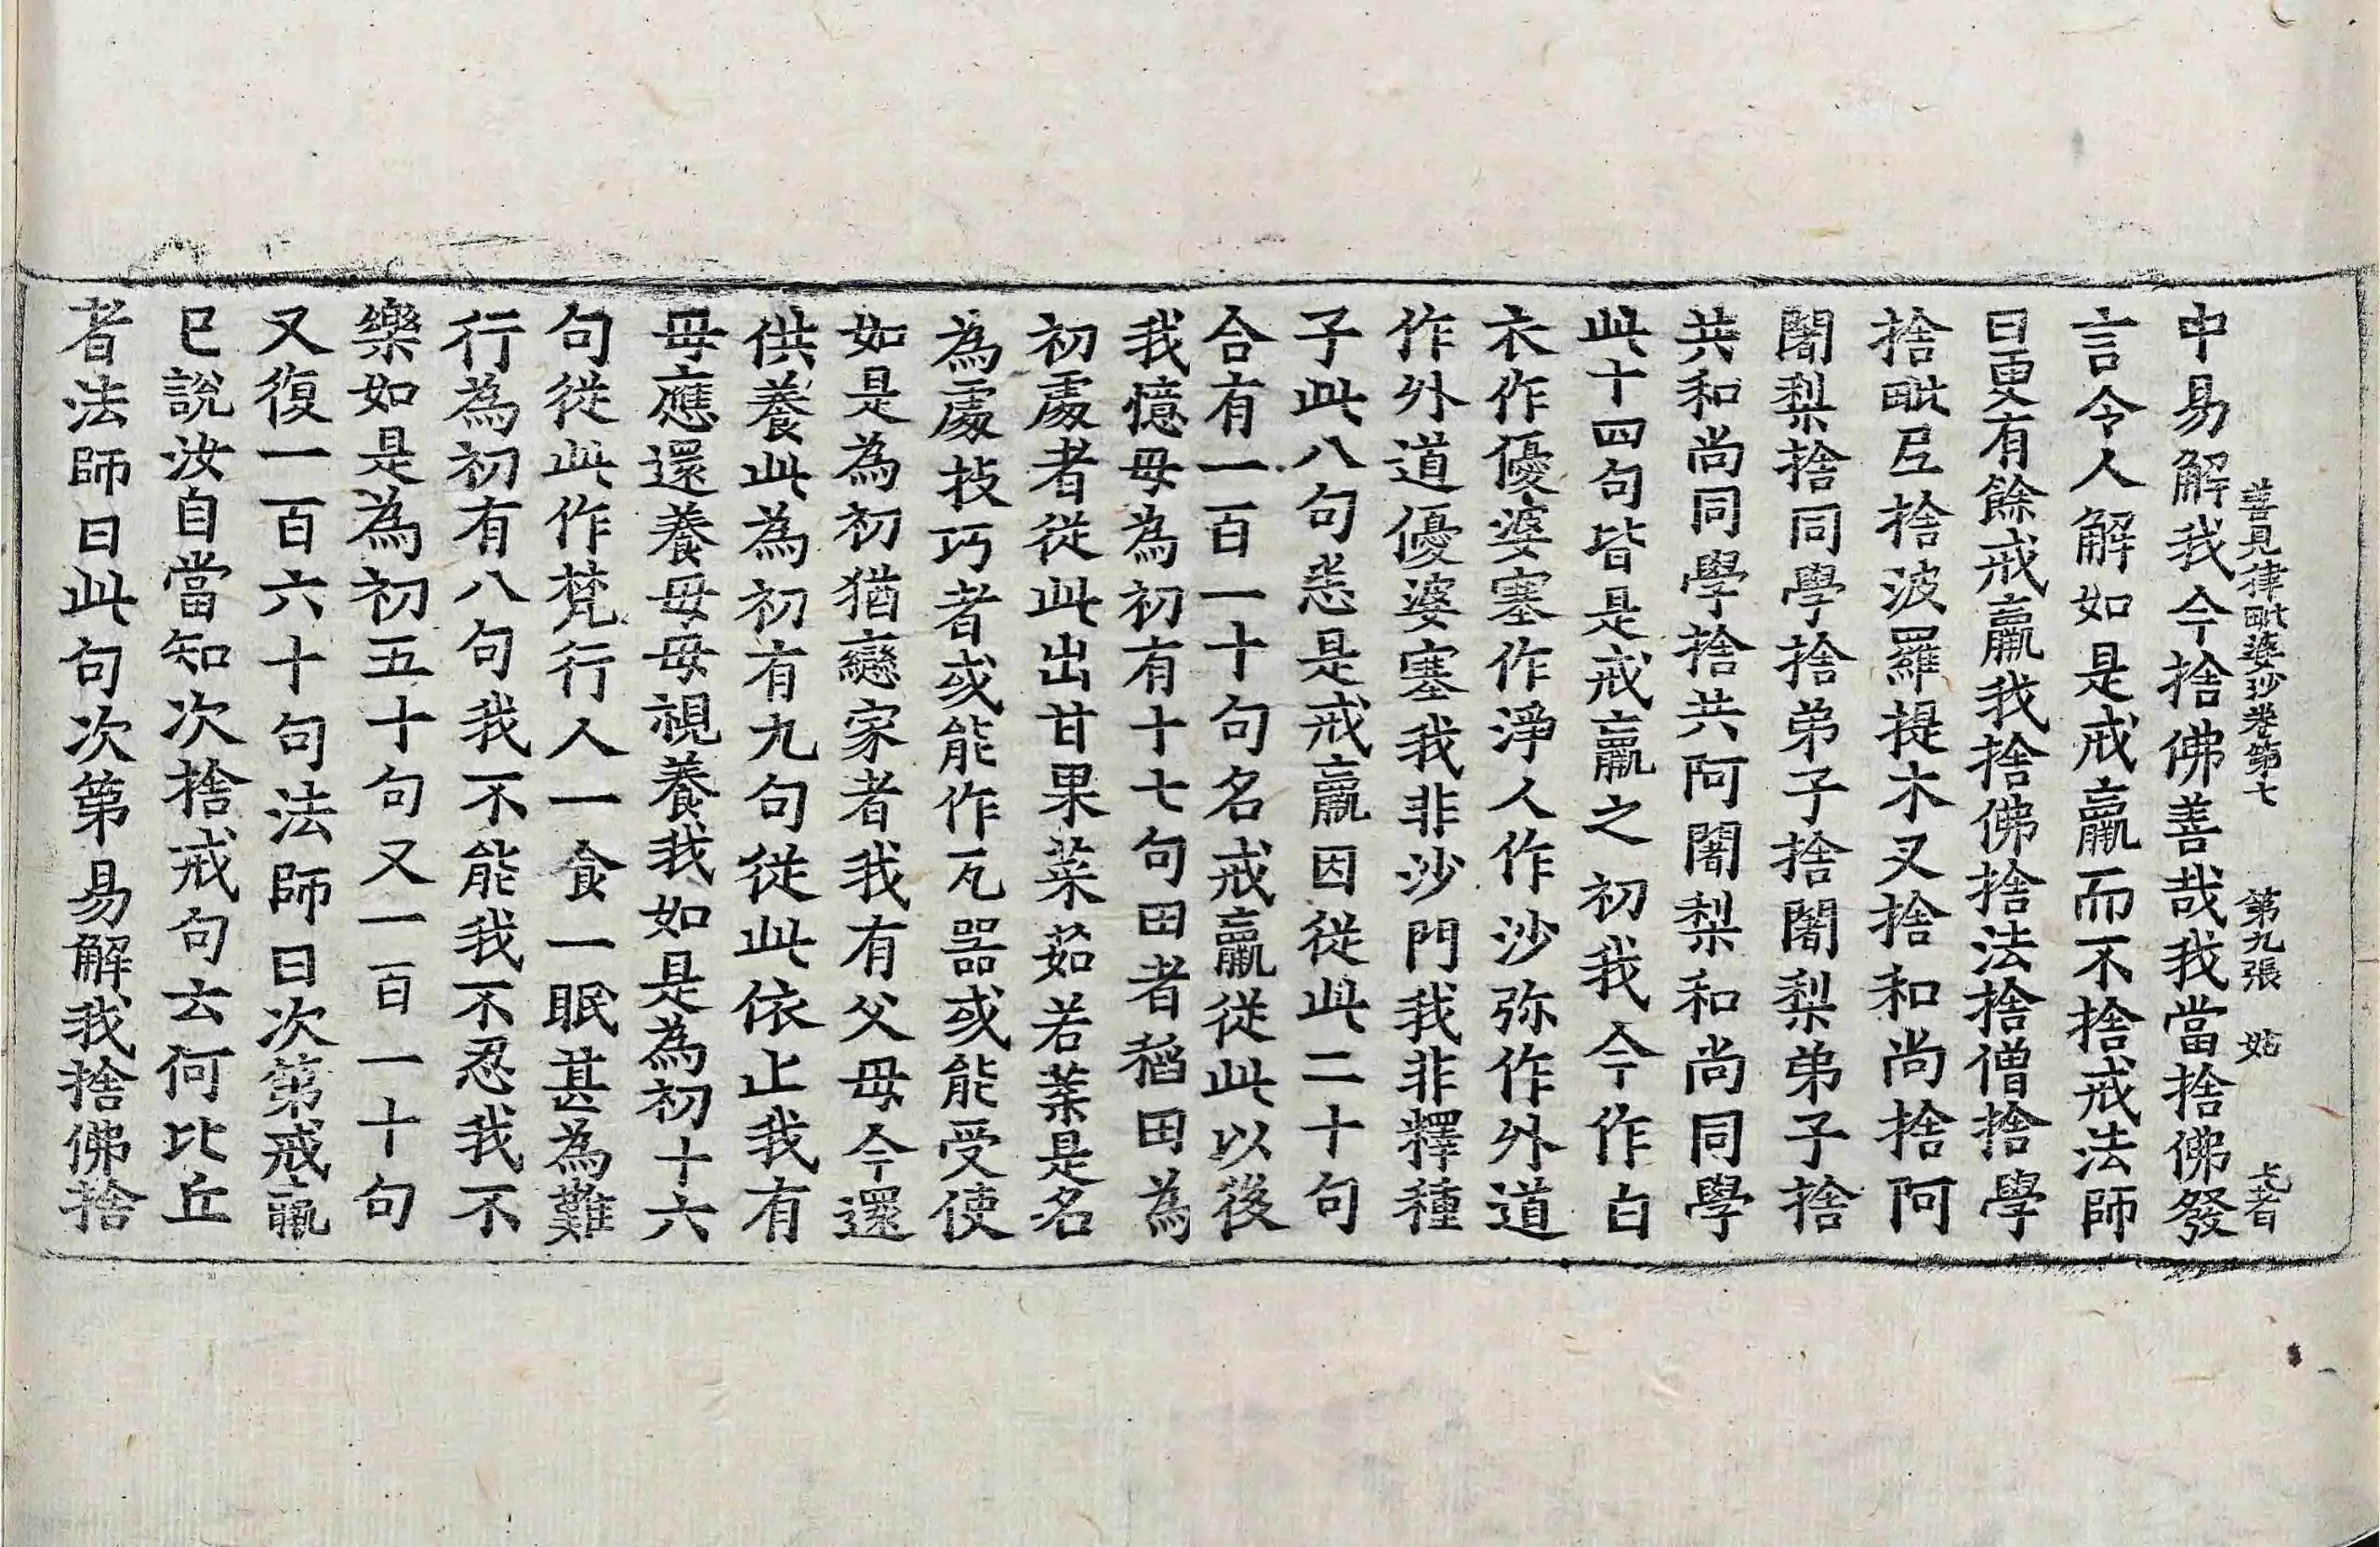 善見律毗婆沙卷第七　第九張　姑
中易解我今捨佛善哉我當捨佛發
言令人解如是戒羸而不捨戒法師
曰更有餘戒羸我捨佛捨法捨僧捨學
捨毗尼捨波羅提木叉捨和尚捨阿
闍梨捨同學捨弟子捨闍梨弟子捨
共和尚同學捨共阿闍梨和尚同學
此十四句皆是戒羸之初我今作白
衣作優婆塞作淨人作沙弥作外道
作外道優婆塞我非沙門我非釋種
子此八句悉是戒羸因從此二十句
合有一百一十句名戒羸從此以後
我憶母為初有十七句田者稻田為
初處者從此出甘果菜茹若葉是名
為處技巧者或能作瓦器或能受使
如是為初猶戀家者我有父母今還
供養此為初有九句從此依止我有
母應還養母母視養我如是為初十六
句從此作梵行人一食一眠甚為難
行為初有八句我不能我不忍我不
樂如是為初五十句又一百一十句
又復一百六十句法師曰次第戒羸
已說汝自當知次捨戒句云何比丘
者法師曰此句次第易解我捨佛捨